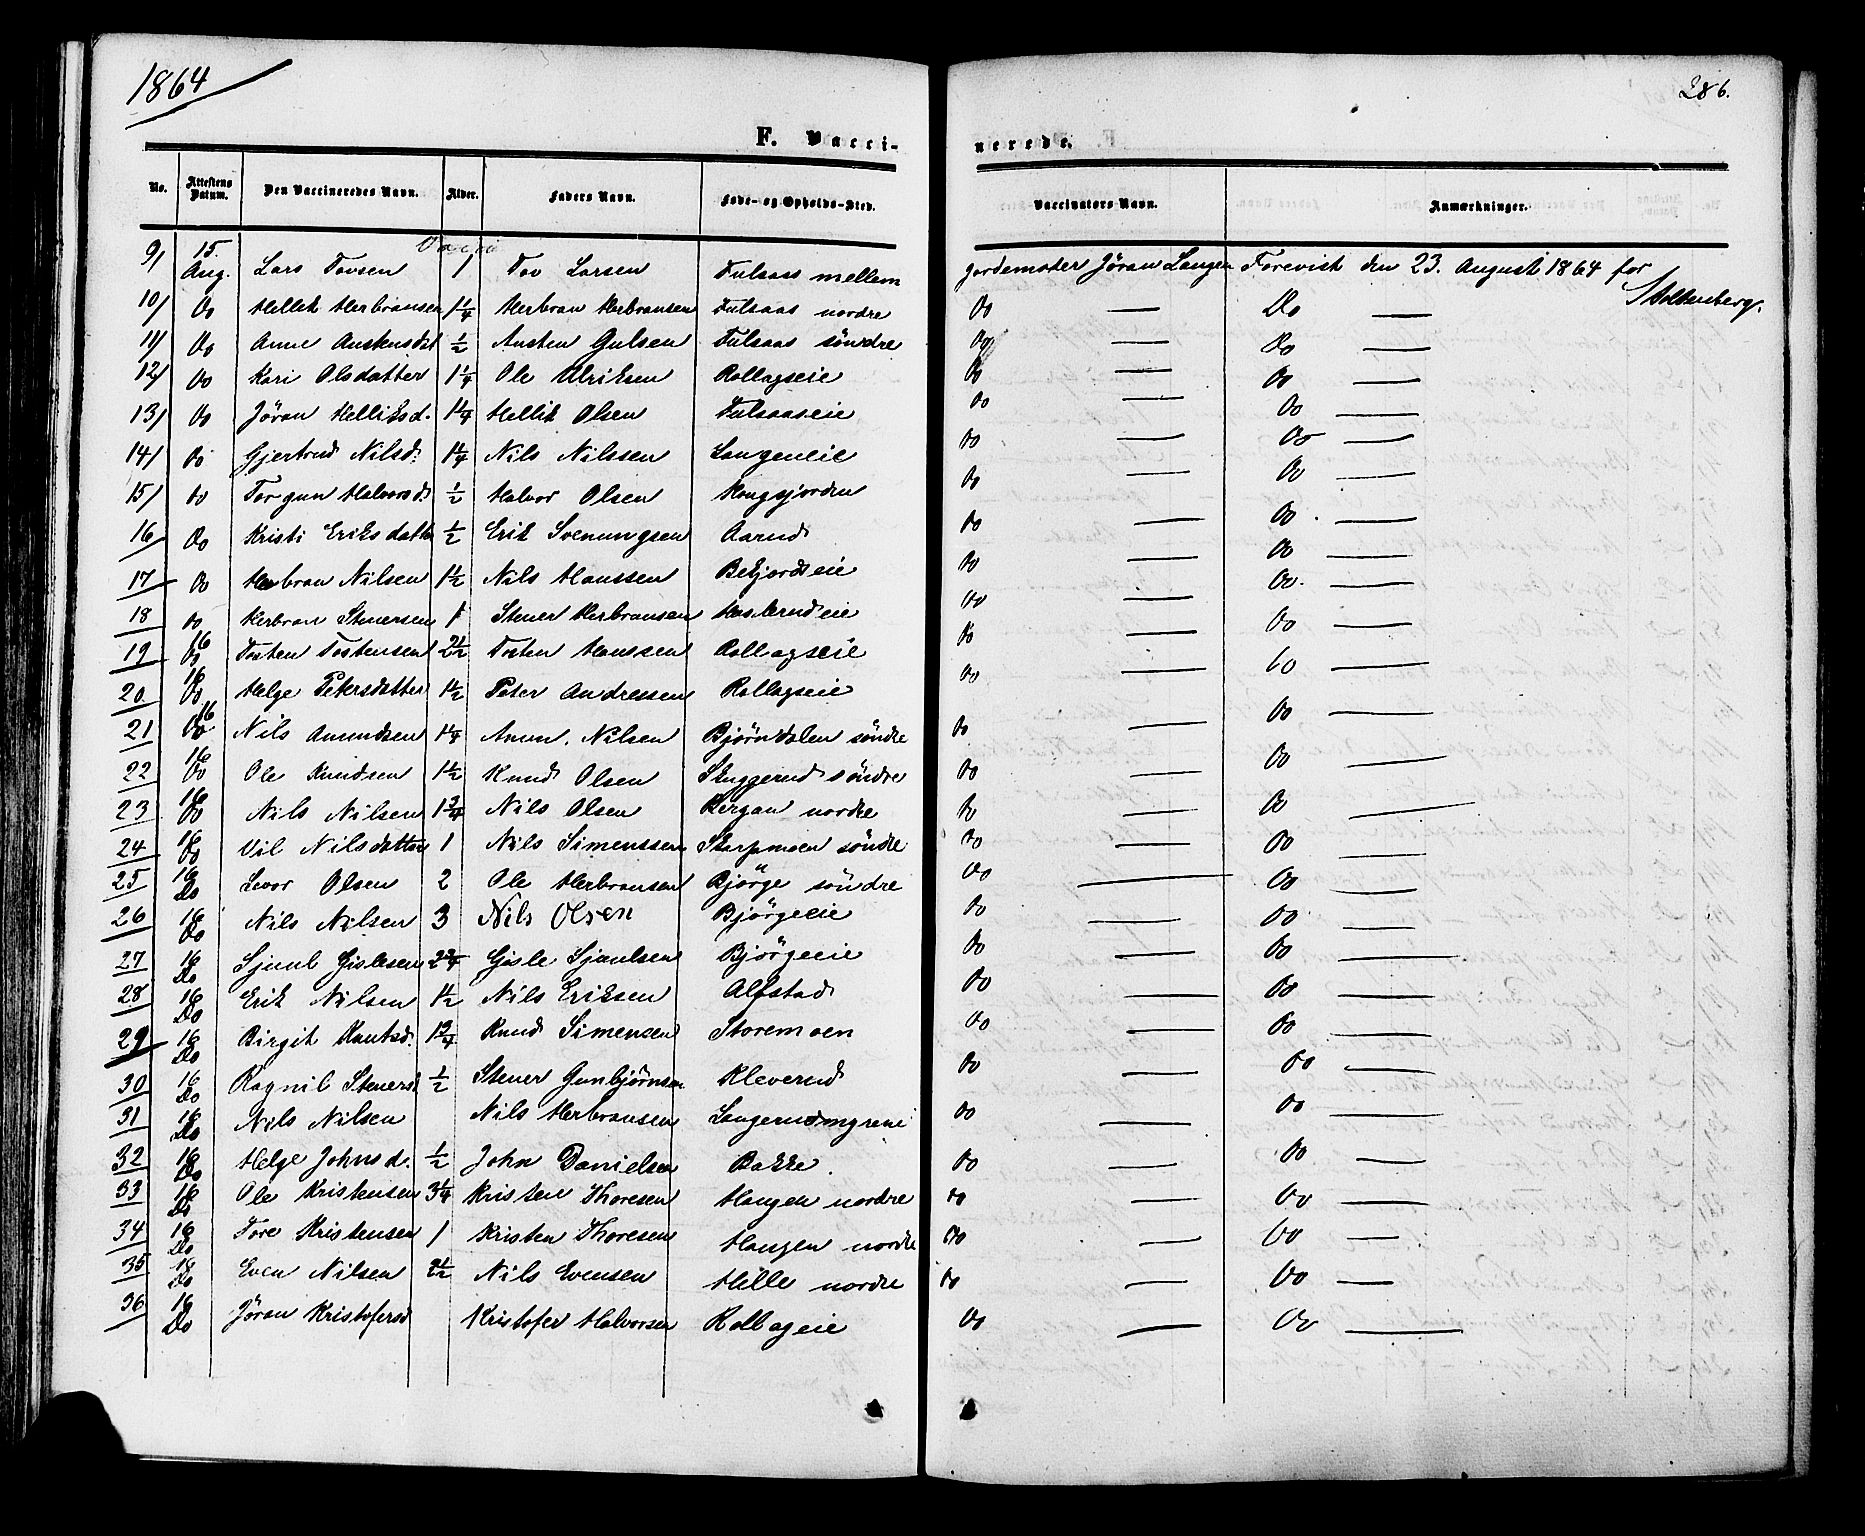 1864
286.
F. Vacci-
nerede.
No. Attestens Datum. Den Vaccineredes Navn. Alder. Faders Navn. Føde- og Opholds-Sted. Vaccinators Navn. Anmærkninger.
9/ 15. Aug. Lars Tovsen 1 Tov Larsen Fulsaas mellem Jordemoder Jöran Langen Forevist den 23. August 1864 for Stoltenberg.
10/ Do Hellik Herbransen 1¼ Herbran Herbransen Fulsaas nordre Do — Do —
11/ Do Anne Austensdat ½ Austen Gulsen Fulsaas söndre Do — Do —
12/ Do Kari Olsdatter 1¼ Ole Ulriksen Rollagseie Do — Do —
13/ Do Jöran Helliksd. 1¼ Hellik Olsen Fulsaaseie Do — Do —
14/ Do Gjertrud Nilsd. 1¼ Nils Nilssen Langeneie Do — Do —
15/ Do Torgun Halvorsd ½ Halvor Olsen Kongsjorden Do — Do —
16 Do Kristi Eriksdatter ½ Erik Svenungsen Aarud Do — Do —
17 Do Herbran Nilsen 1½ Nils Hanssen Bekjordseie Do — Do —
18 Do Herbran Stenersen 1 Stener Herbransen Do — Do —
19 16 Do Tosten Tostensen 2½ Tosten Hanssen Rollagseie Do — Do —
20 16 Do Helge Petersdatter 1½ Peter Andressen Rollagseie Do — Do —
21 16 Do Nils Amundsen 1¼ Amun. Nilsen Björndalen söndre Do — Do —
22 16 Do Ole Knudsen 1½ Knud Olsen Skuggerud söndre Do — Do —
23 16 Do Nils Nilsen 1¾ Nils Olsen Bergan nordre Do — Do —
24 16 Do Nilsdatter 1 Nils Simenssen Skarpmoen söndre Do — Do —
25 16 Do Levor Olsen 2 Ole Herbransen Björge söndre Do — Do —
26 16 Do Nils Nilsen 3 Nils Olsen Björgeeie Do — Do —
27 16 Do Gislesen 2¾ Gisle Björgeeie Do — Do —
28 16 Do Erik Nilsen 1½ Nils Eriksen Alfstad Do — Do —
29 16 Do Birgit Knutsd. 1¾ Knud Simensen Storemoen Do — Do —
30 16 Do Ragnil Stenersd ½ Stener Gunbjörnsen Kleverud Do — Do —
31 16 Do Nils Nilsen Nils Herbransen Do — Do —
32 16 Do Helge Johnsd. ½ John Danielsen Bakke. Do — Do —
33 16 Do Ole Kristensen 3¼ Kristen Thoresen Haugen nordre Do — Do —
34 16 Do Tore Kristensen 1 Kristen Thoresen Haugen nordre Do — Do —
35 16 Do Even Nilsen 2½ Nils Evensen Hille nordre Do — Do —
36 16 Do Jöran Kristofersd Kristofer Halvorsen Rollageie Do — Do —